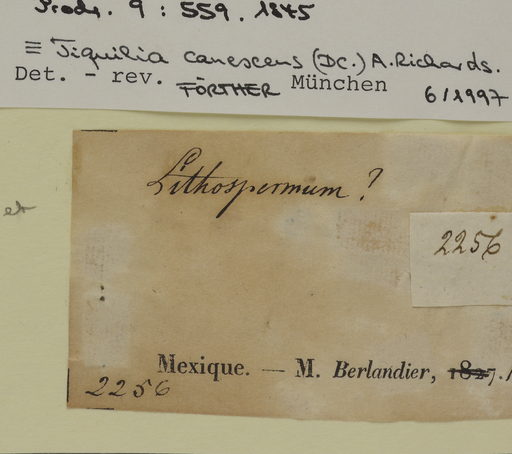 Prodr. 9 : 559. 1845
≡ Tiquilia canescens (DC.) A. Richards.
Det. - rev. FÖRTHER München 6/1997
et
Lithospermum ?
2256
Mexique. — M. Berlandier, 1827.
2256